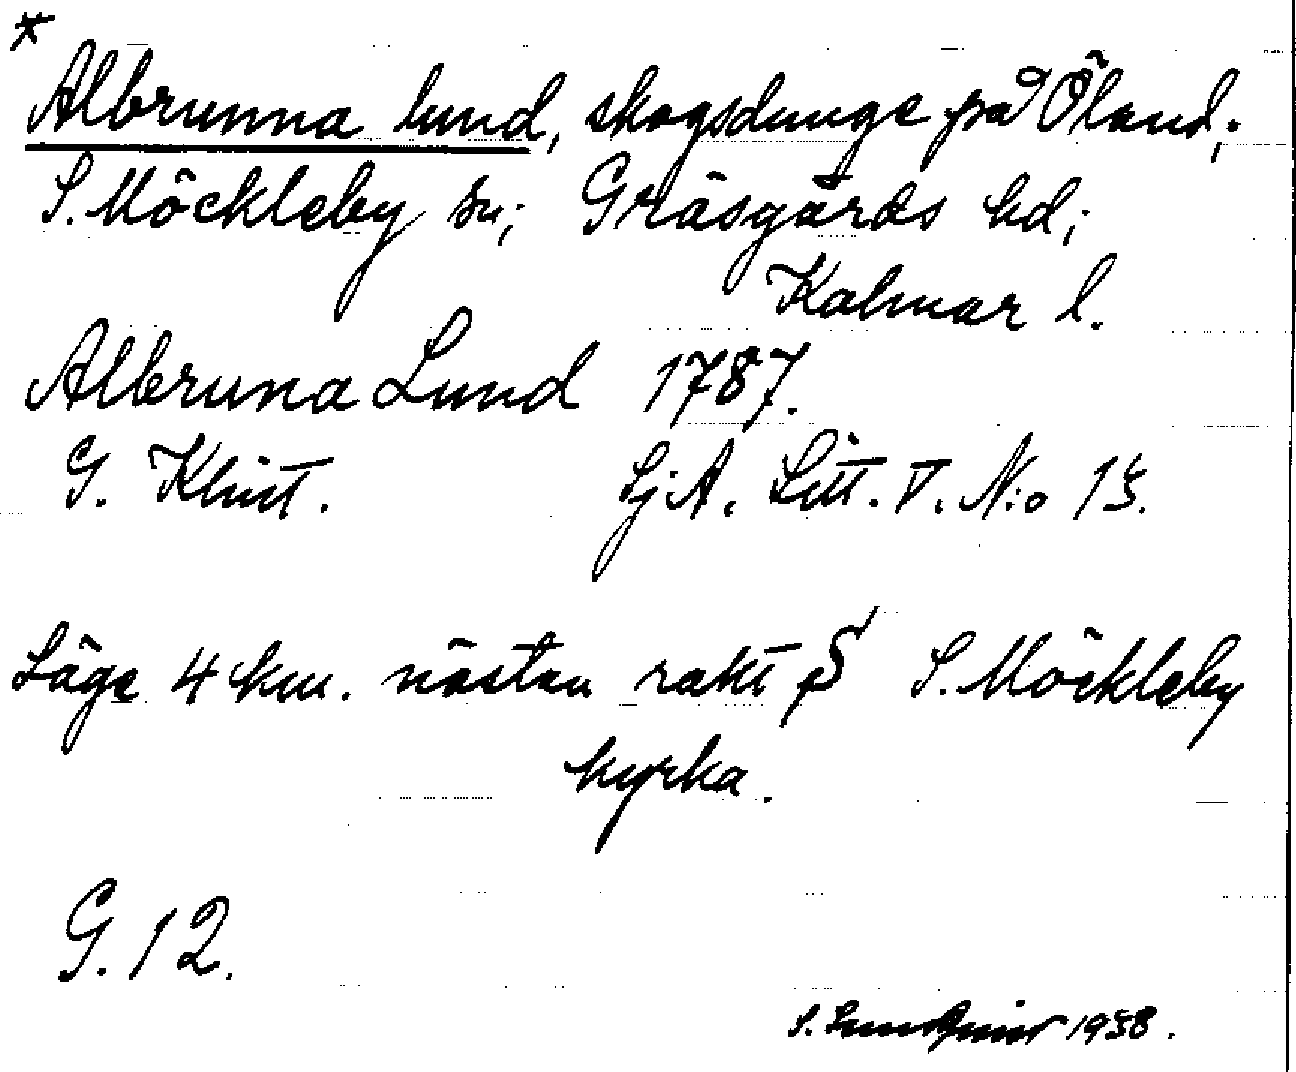 *
Albrunna lund, skogsdunge på Öland;
S. Möckleby sn; Gräsgårds hd;
Kalmar l.
Albruna Lund 1787.
G. Klint. Sj A. Litt. V. N:o 15.
Läge 4 km. nästan rakt S S. Möckleby
kyrka.
G. 12.
S. 1938.